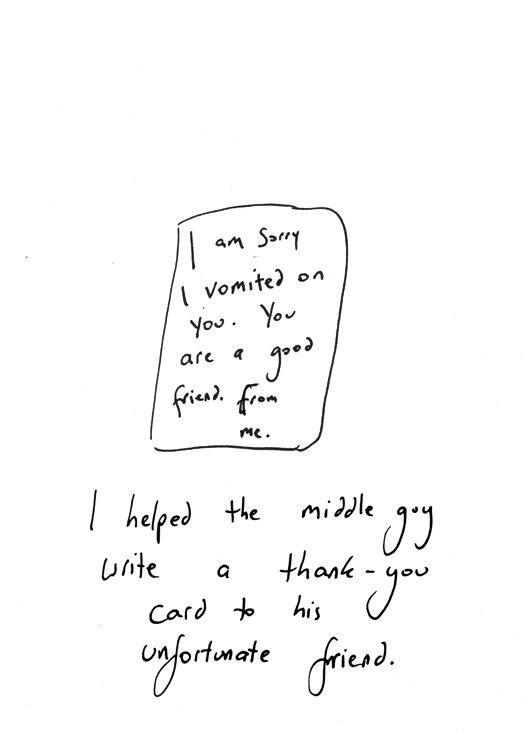 I am Sorry
I vomited on
you. You
are a good
friend. from
me.
I helped the middle guy
write a thank-you
card to his
unfortunate friend.